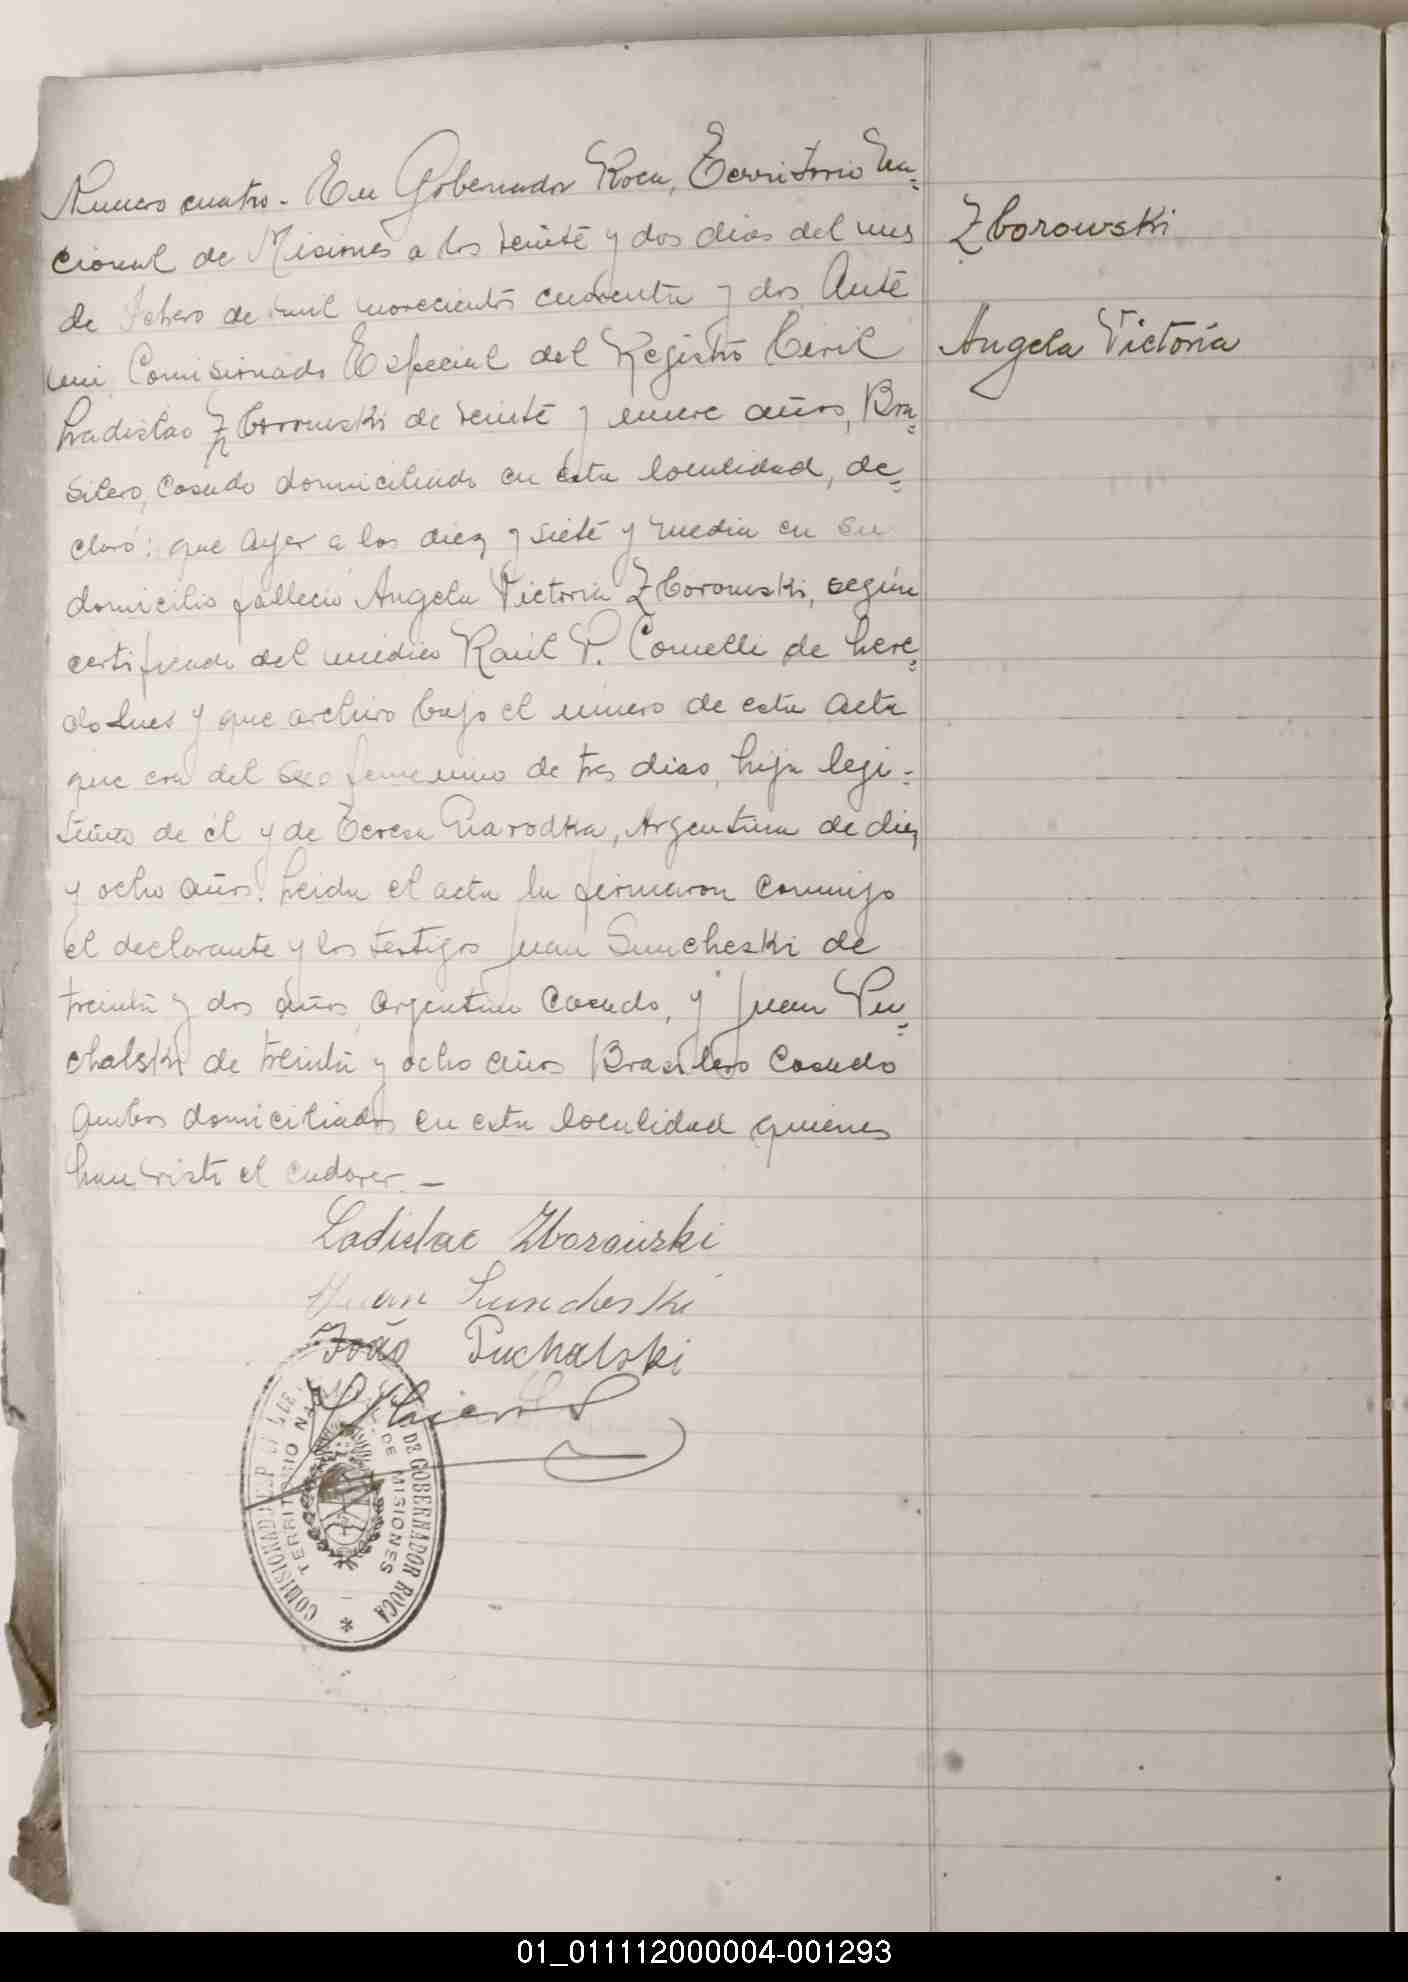 Numero cuatro.- En Gobernador Roca, Territorio Na=
cional de Misiones a los veinte y dos dias del mes
de de mil novecientos cuarenta y dos Ante
mi Comisionado Especial del Registro Civil
Ladislao Zborowski de veinte y nueve años, Bra=
silero, casado domiciliado en esta localidad, de=
claró: que ayer a las diez y siete y media en su
domicilio falleció Angela Victoria Zborowski, según
certificado del médico Raúl P. Comelli de
y que archivo bajo el número de esta acta
que era del sexo femenino de tres dias, hija legi=
tima de él y de Teresa Argentina de diez
y ocho años. Leida el acta la firmaron conmigo
el declarante y los testigos Juan Suncheski de
treinta y dos años, argentino casado, y Juan Pu=
chalski de treinta y ocho años Brasilero casado
ambos domiciliados en esta localidad quienes
han visto el cadaver.-
Ladislao Zborowski
Juan Suncheski
João Puchalski
COMISIONADO DE GOBERNADOR ROCA
TERRITORIO NAC. DE MISIONES
*
Zborowski
Angela Victoria
01_011112000004-001293